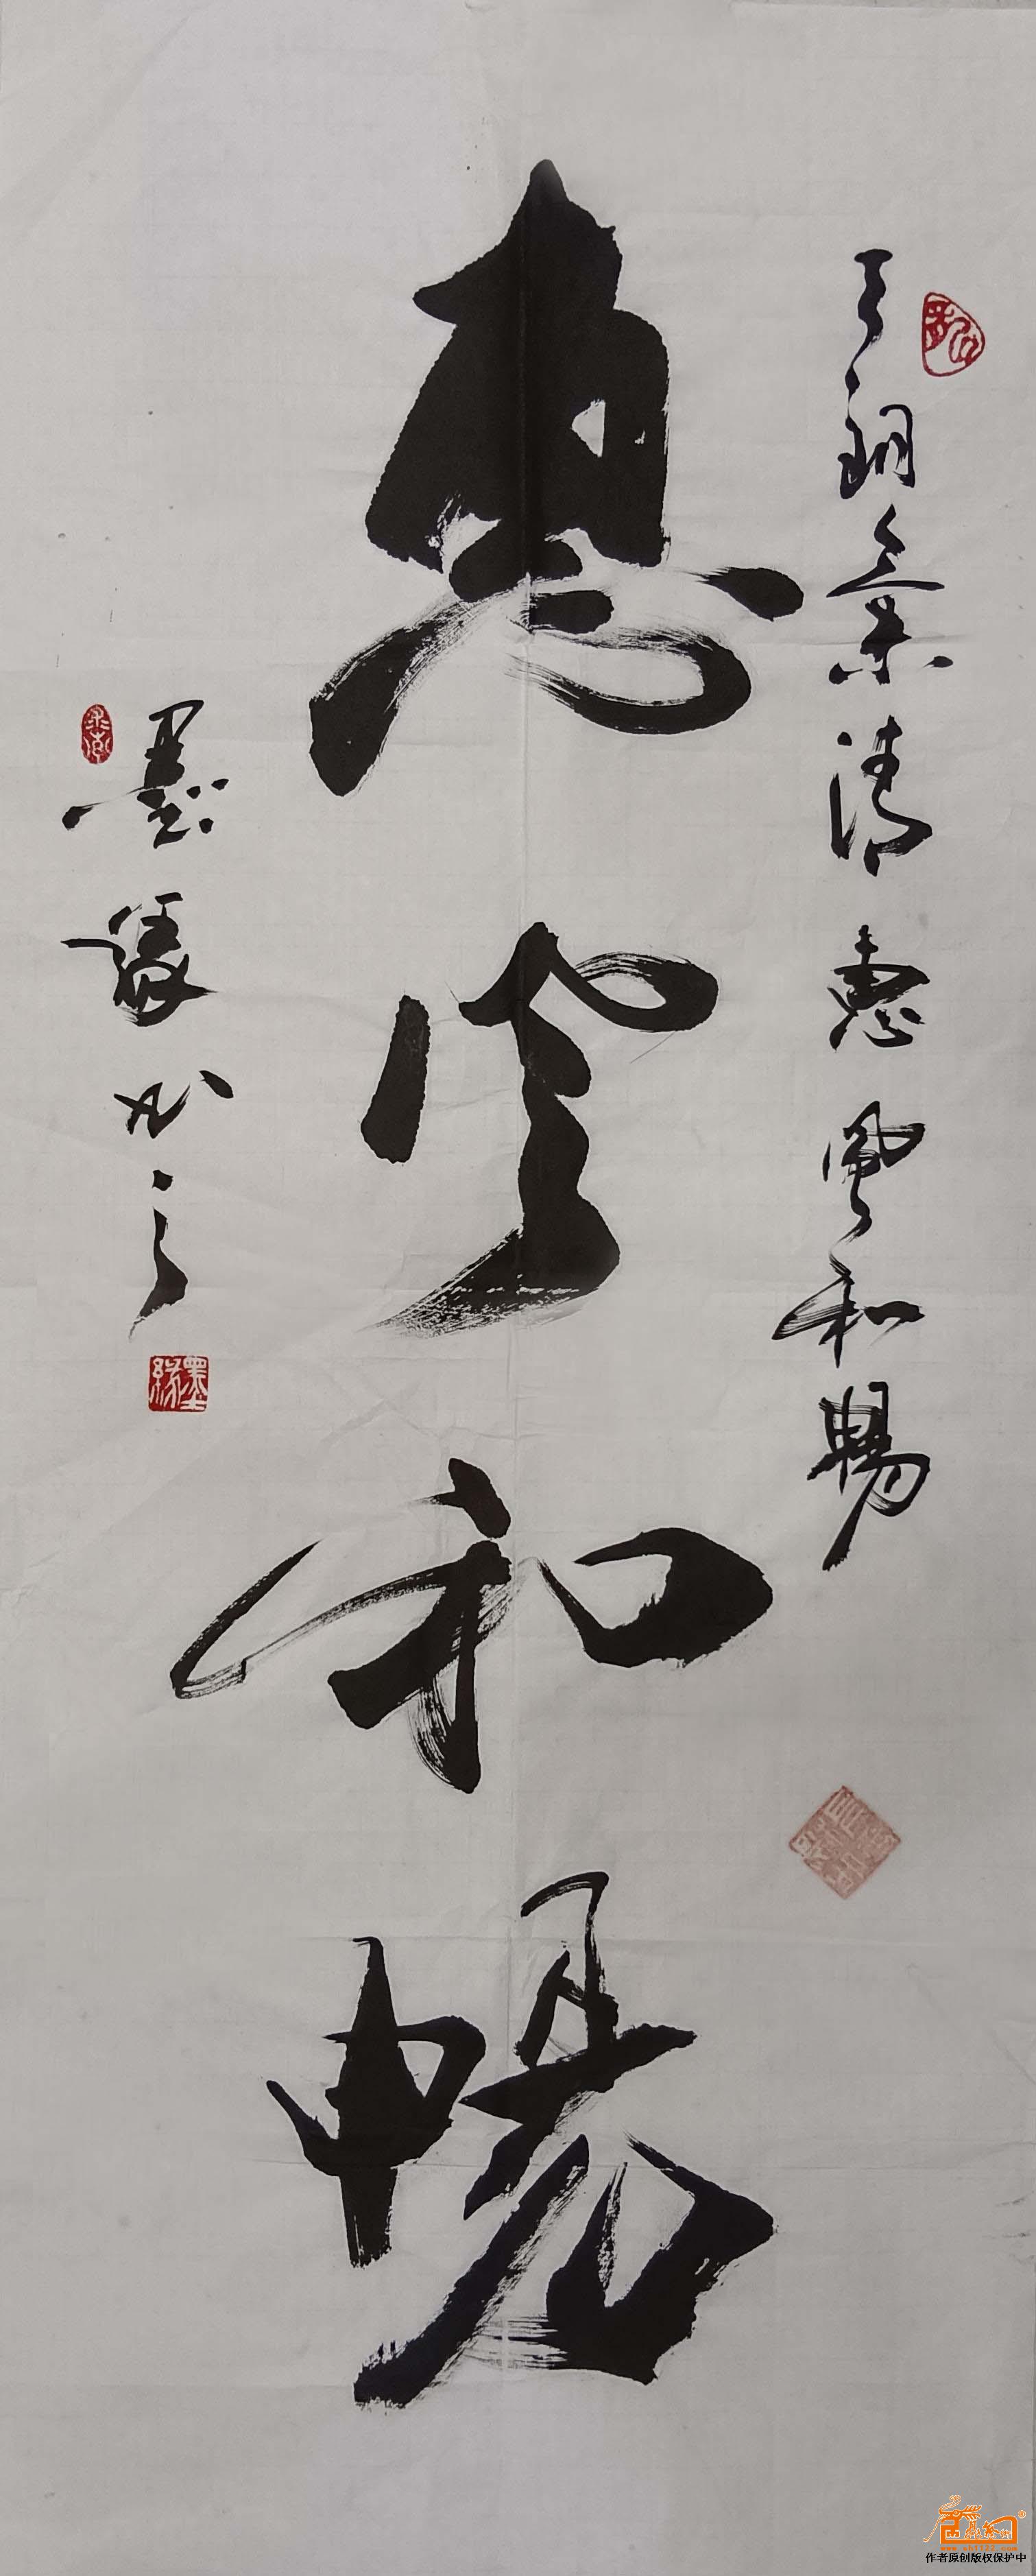 天朗气清惠风和畅
惠风和畅
墨缘书之
墨缘
作者原创版权保护中